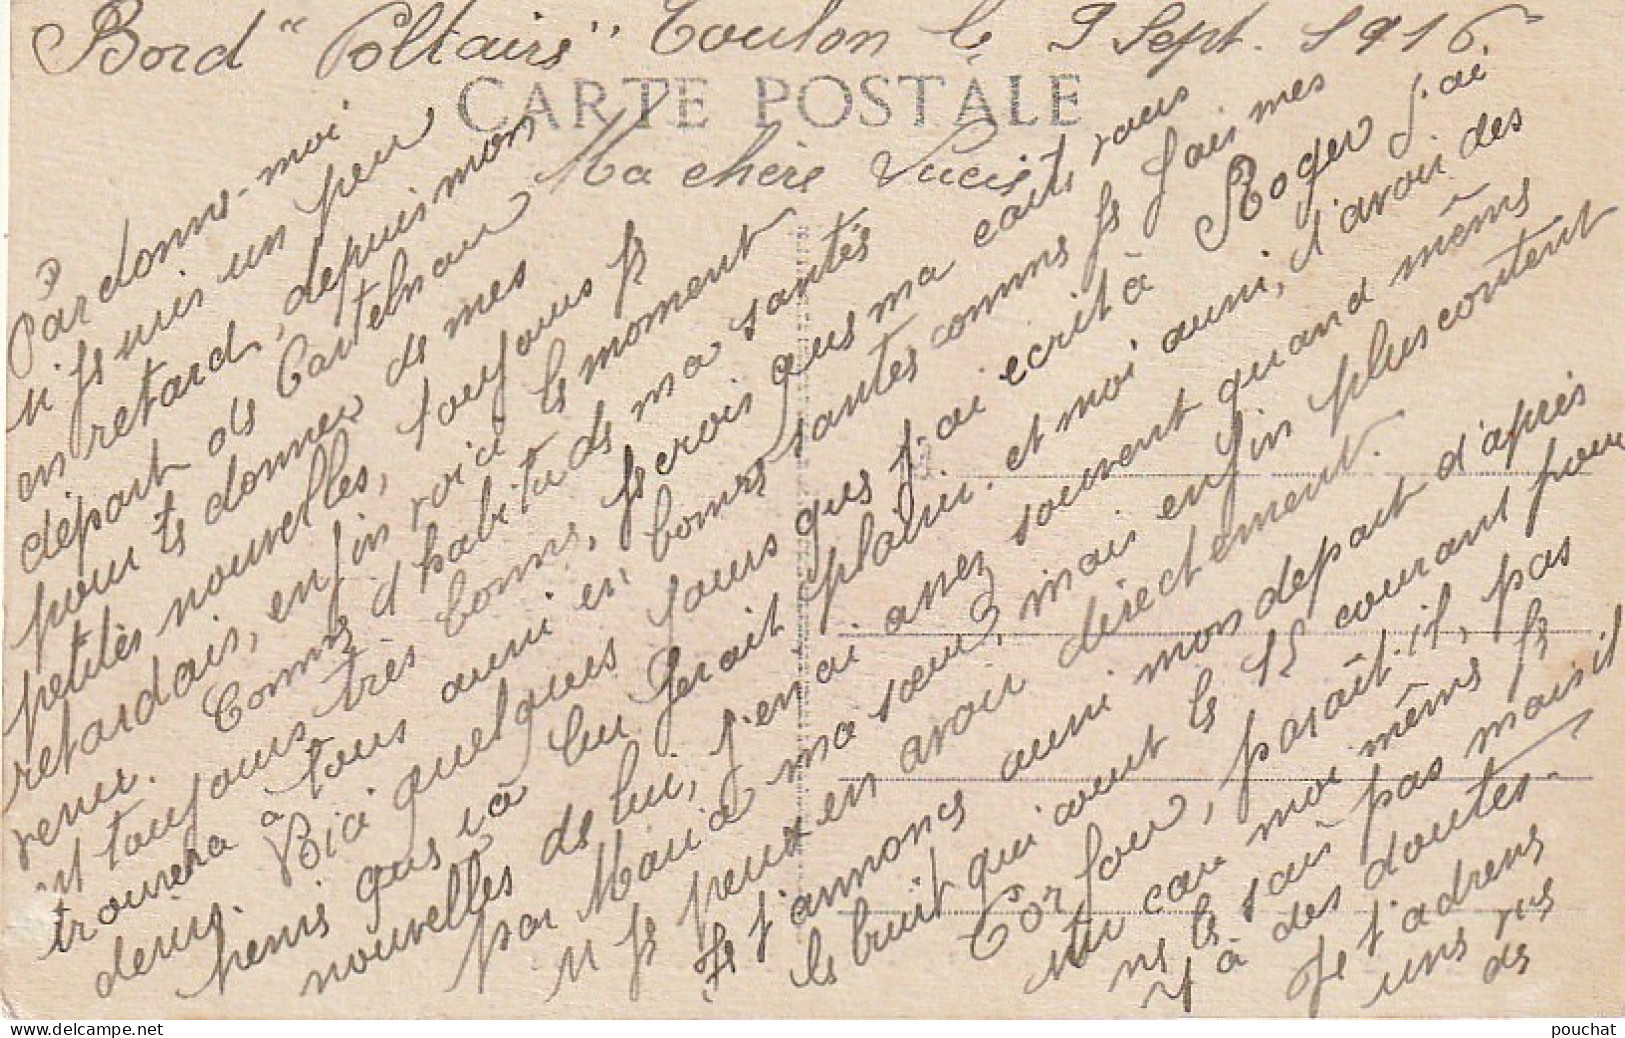 Bord "Voltaire" Toulon le 9 Sept. 1916
CARTE POSTALE
Ma chère Lucie
Pardonne-moi
si je suis un peu
en retard, depuis mon
départ de Castelnau
pour te donner de mes
petites nouvelles, toujours je
retardais, enfin voici le moment
venu. Comme d'habitude ma santé
est toujours très bonne, je crois que ma carte vous
trouvera à tous aussi en bonne santé comme je fais mes
desirs. Voici quelques jours que j'ai ecrit à Roger j'ai
pensé que ça lui ferait plaisir. et moi aussi, d'avoir des
nouvelles de lui, j'en ai assez souvent quand même
par Maria ma sœur, mais enfin plus content
si je peux en avoir directement.
Je t'annonce aussi mon depart d'après
le bruit qui court le 15 courant pour
Corfou, paraît-il, pas
sur car moi même je
ne le sais pas mais il
y a des doutes
Je t'adresse
une vue
de
pouchat